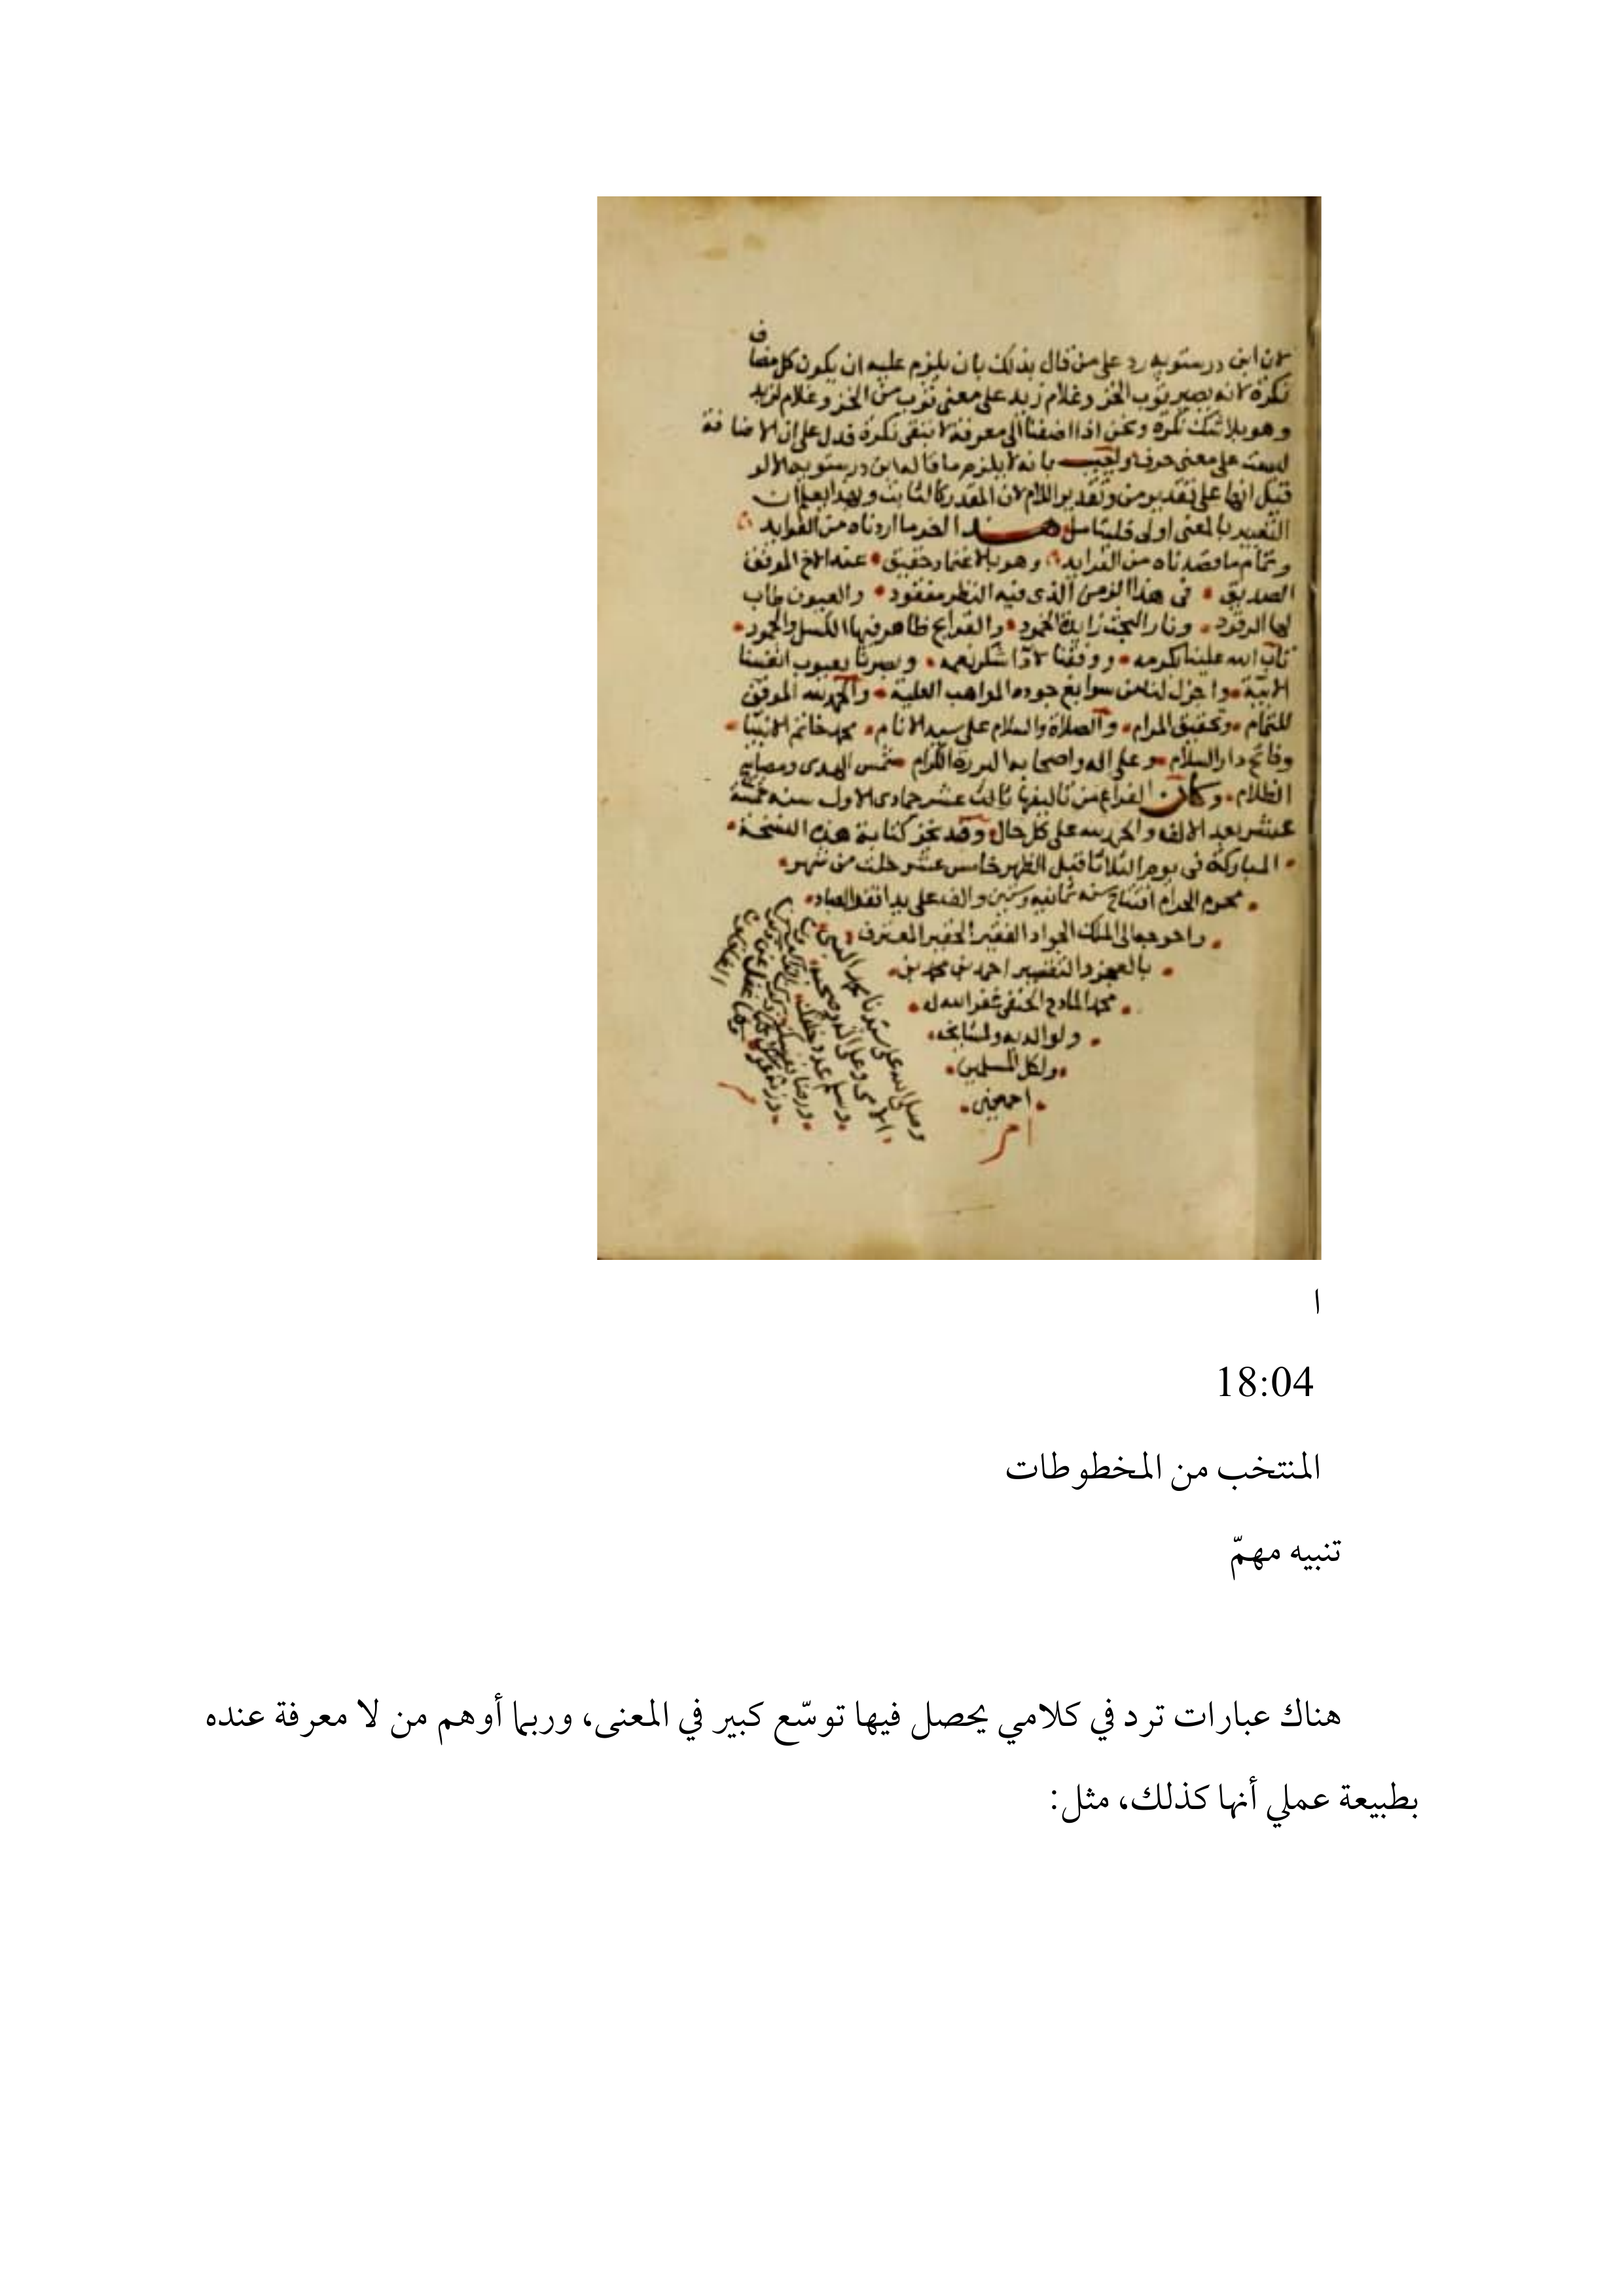 لان ابن درستويه رد على من قال بذلك بان يلزم عليه ان يكون كل مضاف
نكرة لانه يصير ثوب الخز وغلام زيد على معنى ثوب من الخز وغلام لزيد
وهو بلا شك نكرة ونحن اذا اضفنا الى معرفة لا تبقى نكرة فدل على ان الاضافة
ليست على معنى حرف واجيب بانه لا يلزم ما قاله ابن درستويه الا لو
قيل انها على تقدير من وتقدير اللام لان المقدر كالثابت وبهذا يعلم ان
التعبير بالمعنى اولى فليتامل هذا اخر ما اردناه من الفوايد
وتمام ما قصدناه من الفرايد وهو بالاعتماد حقيق عند الاخ الموفق
الصديق في هذا الزمن الذي فيه النظر مفقود والعيون طاب
لها الرقود ونار البحث زايدة الخمود والقرايح ظاهر فيها الكسل والجمود
تاب الله علينا بكرمه ووفقنا لادا شكر نعمه وبصرنا بعيوب انفسنا
الابية واجزل لنا من سوابغ جوده المواهب العلية والحمد لله الموفق
للتمام وتحقيق المرام والصلاة والسلام على سيد الانام محمد خاتم الانبيا
وفاتح دار السلام وعلى اله واصحابه البررة الكرام شمس الهدى ومصابيح
الظلام وكان الفراغ من تاليفها ثالث عشر جمادى الاول سنة خمسة
عشر بعد الالف والحمد لله على كل حال وقد نجز كتابة هذه النسخة
المباركة في يوم الثلاثا قبيل الظهر خامس عشر خلت من شهر
محرم الحرام افتتاح سنة ثمانية وستين والف على يد افقر العباد
واحوجهم الى الملك الجواد الفقير الحقير المعترف
بالعجز والتقصير احمد بن محمد بن
محمد المادح الحنفي غفر الله له
ولوالديه ولمشايخه
ولكل المسلمين
اجمعين
وصلى الله على سيدنا محمد النبي
الامي وعلى اله وصحبه
وسلم عدد خلقه
ورضا نفسه
وزنة عرشه
ا
18:04
المنتخب من المخطوطات
تنبيه مهمّ
هناك عبارات ترد في كلامي يحصل فيها توسّع كبير في المعنى، وربما أوهم من لا معرفة عنده
بطبيعة عملي أنها كذلك، مثل: